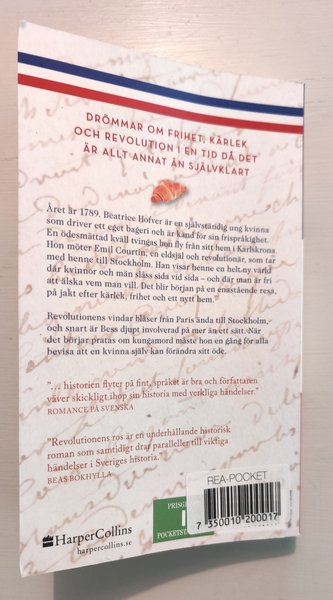 DRÖMMAR OM FRIHET, KÄRLEK
OCH REVOLUTION I EN TID DÅ DET
ÄR ALLT ANNAT ÄN SJÄLVKLART
Året är 1789. Béatrice Hofver är en självständig ung kvinna
som driver ett eget bageri och är känd för sin frispråkighet.
En ödesmättad kväll tvingas hon fly från sitt hem i Karlskrona.
Hon möter Emil Courtin, en eldsjäl och revolutionär, som tar
med henne till Stockholm. Han visar henne en helt ny värld
där kvinnor och män slåss sida vid sida – och där man är fri
att älska vem man vill. Det blir början på en enastående resa,
på jakt efter kärlek, frihet och ett nytt hem.
Revolutionens vindar blåser från Paris ända till Stockholm,
och snart är Bess djupt involverad på mer än ett sätt. När
det börjar pratas om kungamord måste hon en gång för alla
bevisa att en kvinna själv kan förändra sitt öde.
"... historien flyter på fint, språket är bra och författaren
väver skickligt ihop sin historia med verkliga händelser."
ROMANCE PÅ SVENSKA
"Revolutionens ros är en underhållande historisk
roman som samtidigt drar paralleller till viktiga
händelser i Sveriges historia."
BEAS BOKHYLLA
REA-POCKET
7 350010 200017
PRISG
POCKETST
HarperCollins
harpercollins.se